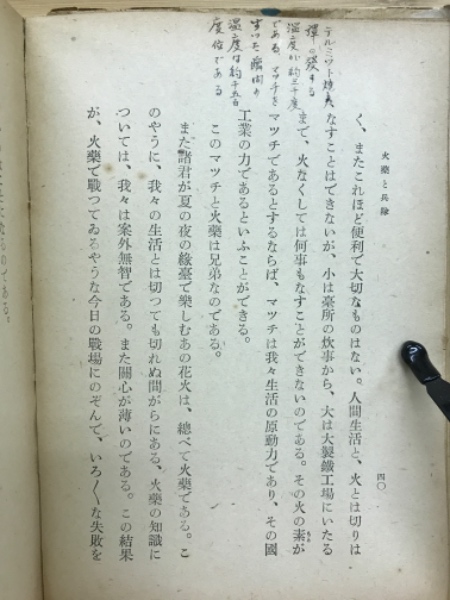 テルミット焼夷
弾の発する
温度が約三千度
である マッチを
すつた瞬間の
温度は約千五百
度位である
火藥と兵隊
四〇
く、またこれほど便利で大切なものはない。人間生活と、火とは切りは
なすことはできないが、小は臺所の炊事から、大は大製鐵工場にいたる
まで、火なくしては何事もなすことができないのである。その火の素が
もと
マツチであるとするならば、マツチは我々生活の原動力であり、その國
工業の力であるといふことができる。
このマツチと火藥は兄弟なのである。
また諸君が夏の夜の緣臺で樂しむあの花火は、總べて火藥である。こ
のやうに、我々の生活とは切つても切れぬ間がらにある、火藥の知識に
ついては、我々は案外無智である。また關心が薄いのである。この結果
が、火藥で戰つてゐるやうな今日の戰場にのぞんで、いろ〱な失敗を